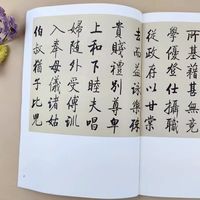 所基籍甚無竟
學優登仕攝職
從政存以甘棠
去而益詠樂殊
貴賤禮別尊卑
上和下睦夫唱
婦隨外受傅訓
入奉母儀諸姑
伯叔猶子比兒